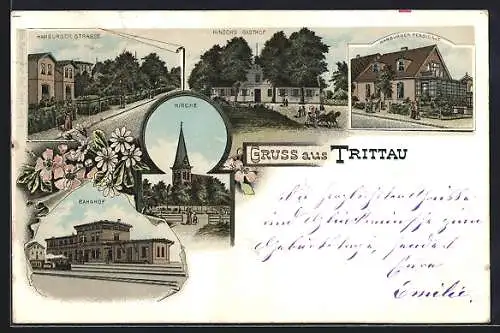 HAMBURGER STRASSE
HINSCH'S GASTHOF
HAMBURGER PENSIONAT
KIRCHE
GRUSS aus TRITTAU
BAHNHOF
Die herzlichsten Grüsse
und Glückwünsche zum
Geburtstage, sendet
Eure
Emilie.